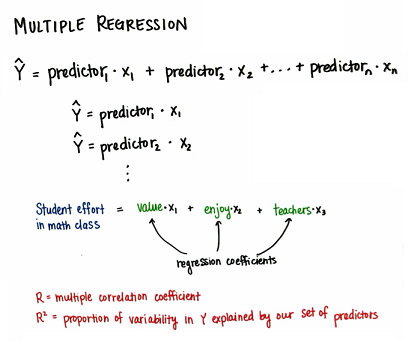 MULTIPLE REGRESSION
Ŷ = predictor₁ · x₁ + predictor₂ · x₂ +...+ predictorₙ · xₙ
Ŷ = predictor₁ · x₁
Ŷ = predictor₂ · x₂
⋮
Student effort = value·x₁ + enjoy·x₂ + teachers·x₃
in math class
regression coefficients
R = multiple correlation coefficient
R² = proportion of variability in Y explained by our set of predictors